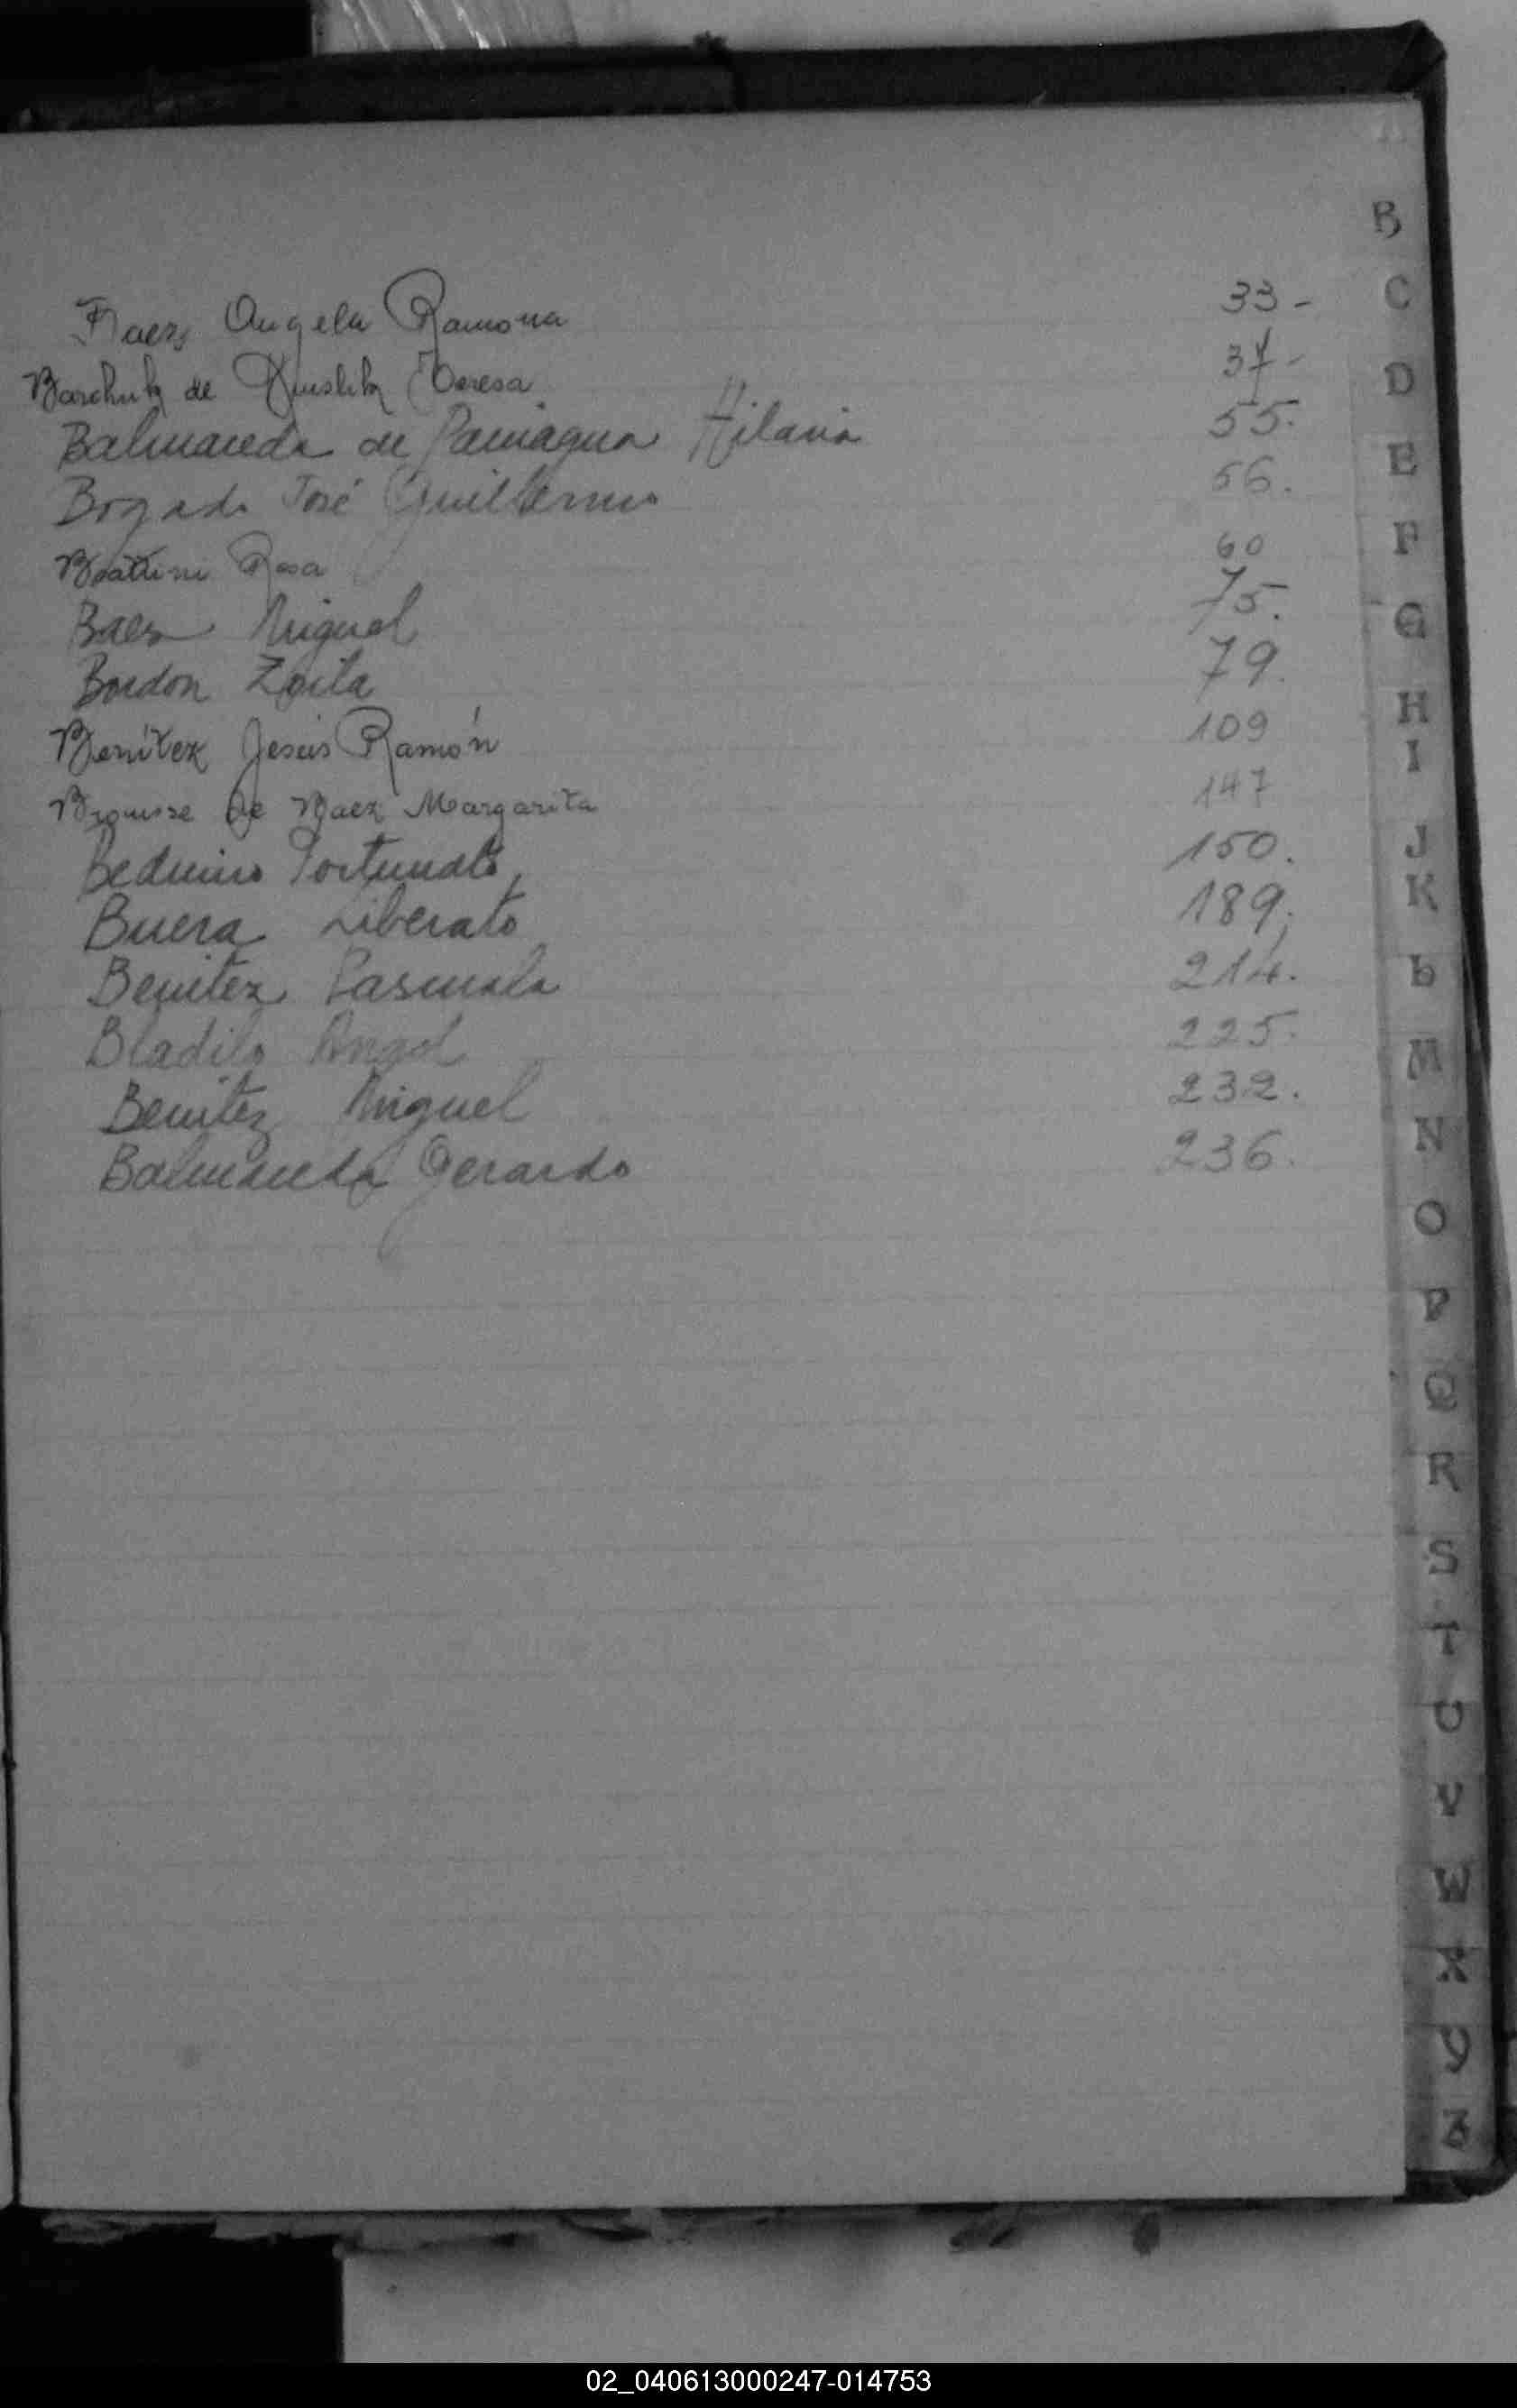 B
Baez Angela Ramona 33-
C
Barchuk de Teresa 37-
D
Balmaceda de Paniagua Hilaria 55.
E
Bogado José Guillermo 56.
F
Rosa 60
Baez Miguel 75.
G
Bordon Zoila 79.
H
Benítez Jesús Ramón 109
I
Brousse de Baez Margarita 147
J
Beduino Fortunato 150.
K
Buera Liberato 189.
L
Benitez Pascuala 214.
Bladilo Angel 225.
M
Benitez Miguel 232.
N
Balmaceda Gerardo 236.
O
P
Q
R
S
T
U
V
W
X
Y
Z
02_040613000247-014753